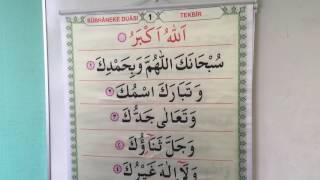 SÜBHÂNEKE DUÂSI 1 TEKBİR
اَللهُ اَكْبَرُ
سُبْحَانَكَ اللّٰهُمَّ وَبِحَمْدِكَ ١
وَ تَبَارَكَ اسْمُكَ ٢
وَ تَعَالٰى جَدُّكَ ٣
وَ جَلَّ ثَنَاؤُكَ ٤
وَلَا اِلٰهَ غَيْرُكَ